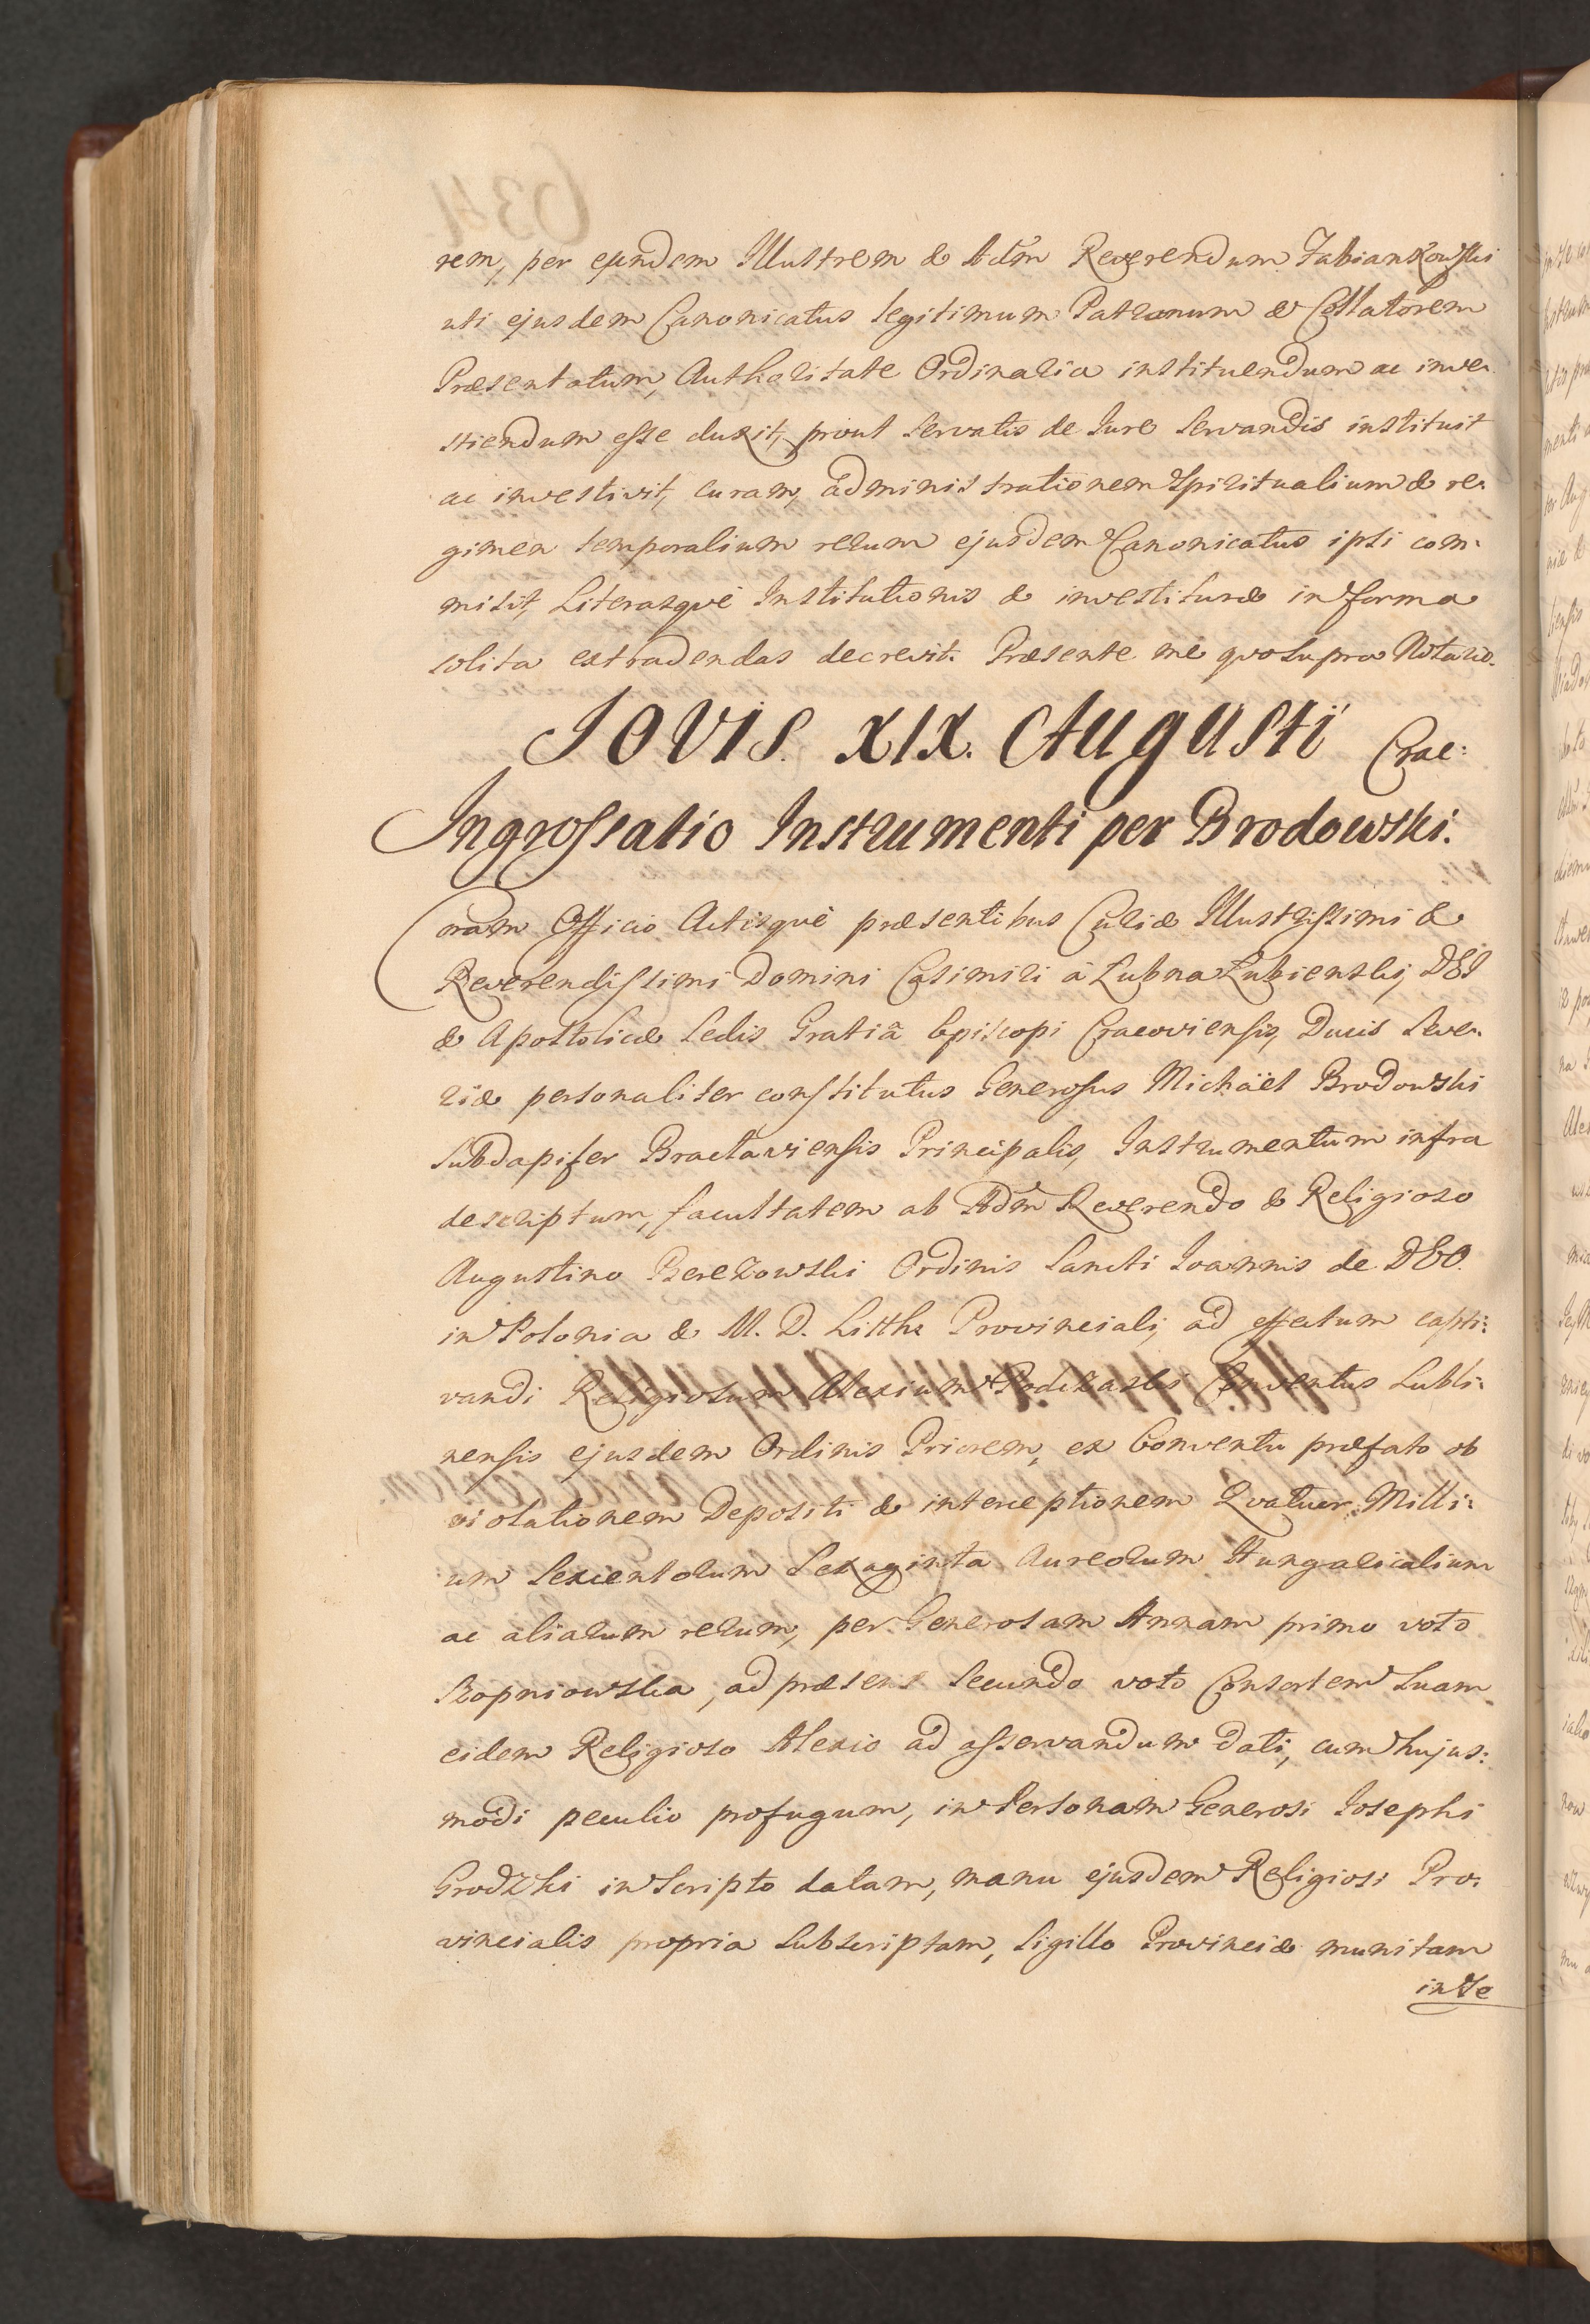 rem, per eundem Illustrem & Adm Reverendum Fabiankowski
uti ejusdem Canonicatus legitimum Patronum & Collatorem
Præsentatum, Authoritate Ordinaria instituendum ac inve-
stiendum esse duxit, prout servatis de Iure servandis instituit
ac investivit, curam, administrationem spiritualium & re-
gimen temporalium rerum ejusdem Canonicatus ipsi com-
misit, Literasque Institutionis & investituræ in forma
solita extradendas decrevit. Præsente me quo supra Notario.
Iovis. XIX. Augusti Crac:
Ingrossatio Instrumenti per Brodowski.
Coram Officio Actisque præsentibus Curiæ Illustrissimi &
Reverendissimi Domini Casimiri à Lubna Lubienski, DEI
& Apostolicæ Sedis Gratiâ Episcopi Cracoviensis, Ducis Seve-
riæ personaliter constitutus Generosus Michäel Brodowski
Subdapifer Braclaviensis Principalis, Instrumentum infra
descriptum, facultatem ab Adm Reverendo & Religioso
Augustino Berezowski Ordinis Sancti Ioannis de DEO
in Polonia & M. D. Litthe Provinciali, ad effectum capti-
vandi Religiosum Alexium Conventus Lubli-
nensis ejusdem Ordinis Priorem, ex Conventu præfato ob
violationem Depositi & interceptionem Quatuor Milli-
um Sexcentorum Sexaginta Aureorum Hungaricalium
ac aliarum rerum, per Generosam Annam primo voto
Ropniowska, ad præsens secundo voto Consortem Suam
eidem Religioso Alexio ad asservandum dati, cum hujus-
modi peculio profugum, in Personam Generosi Iosephi
Grodzki in Scripto datam, manu ejusdem Religiosi Pro-
vincialis propria subscriptam, Sigillo Provinciæ munitam
in se